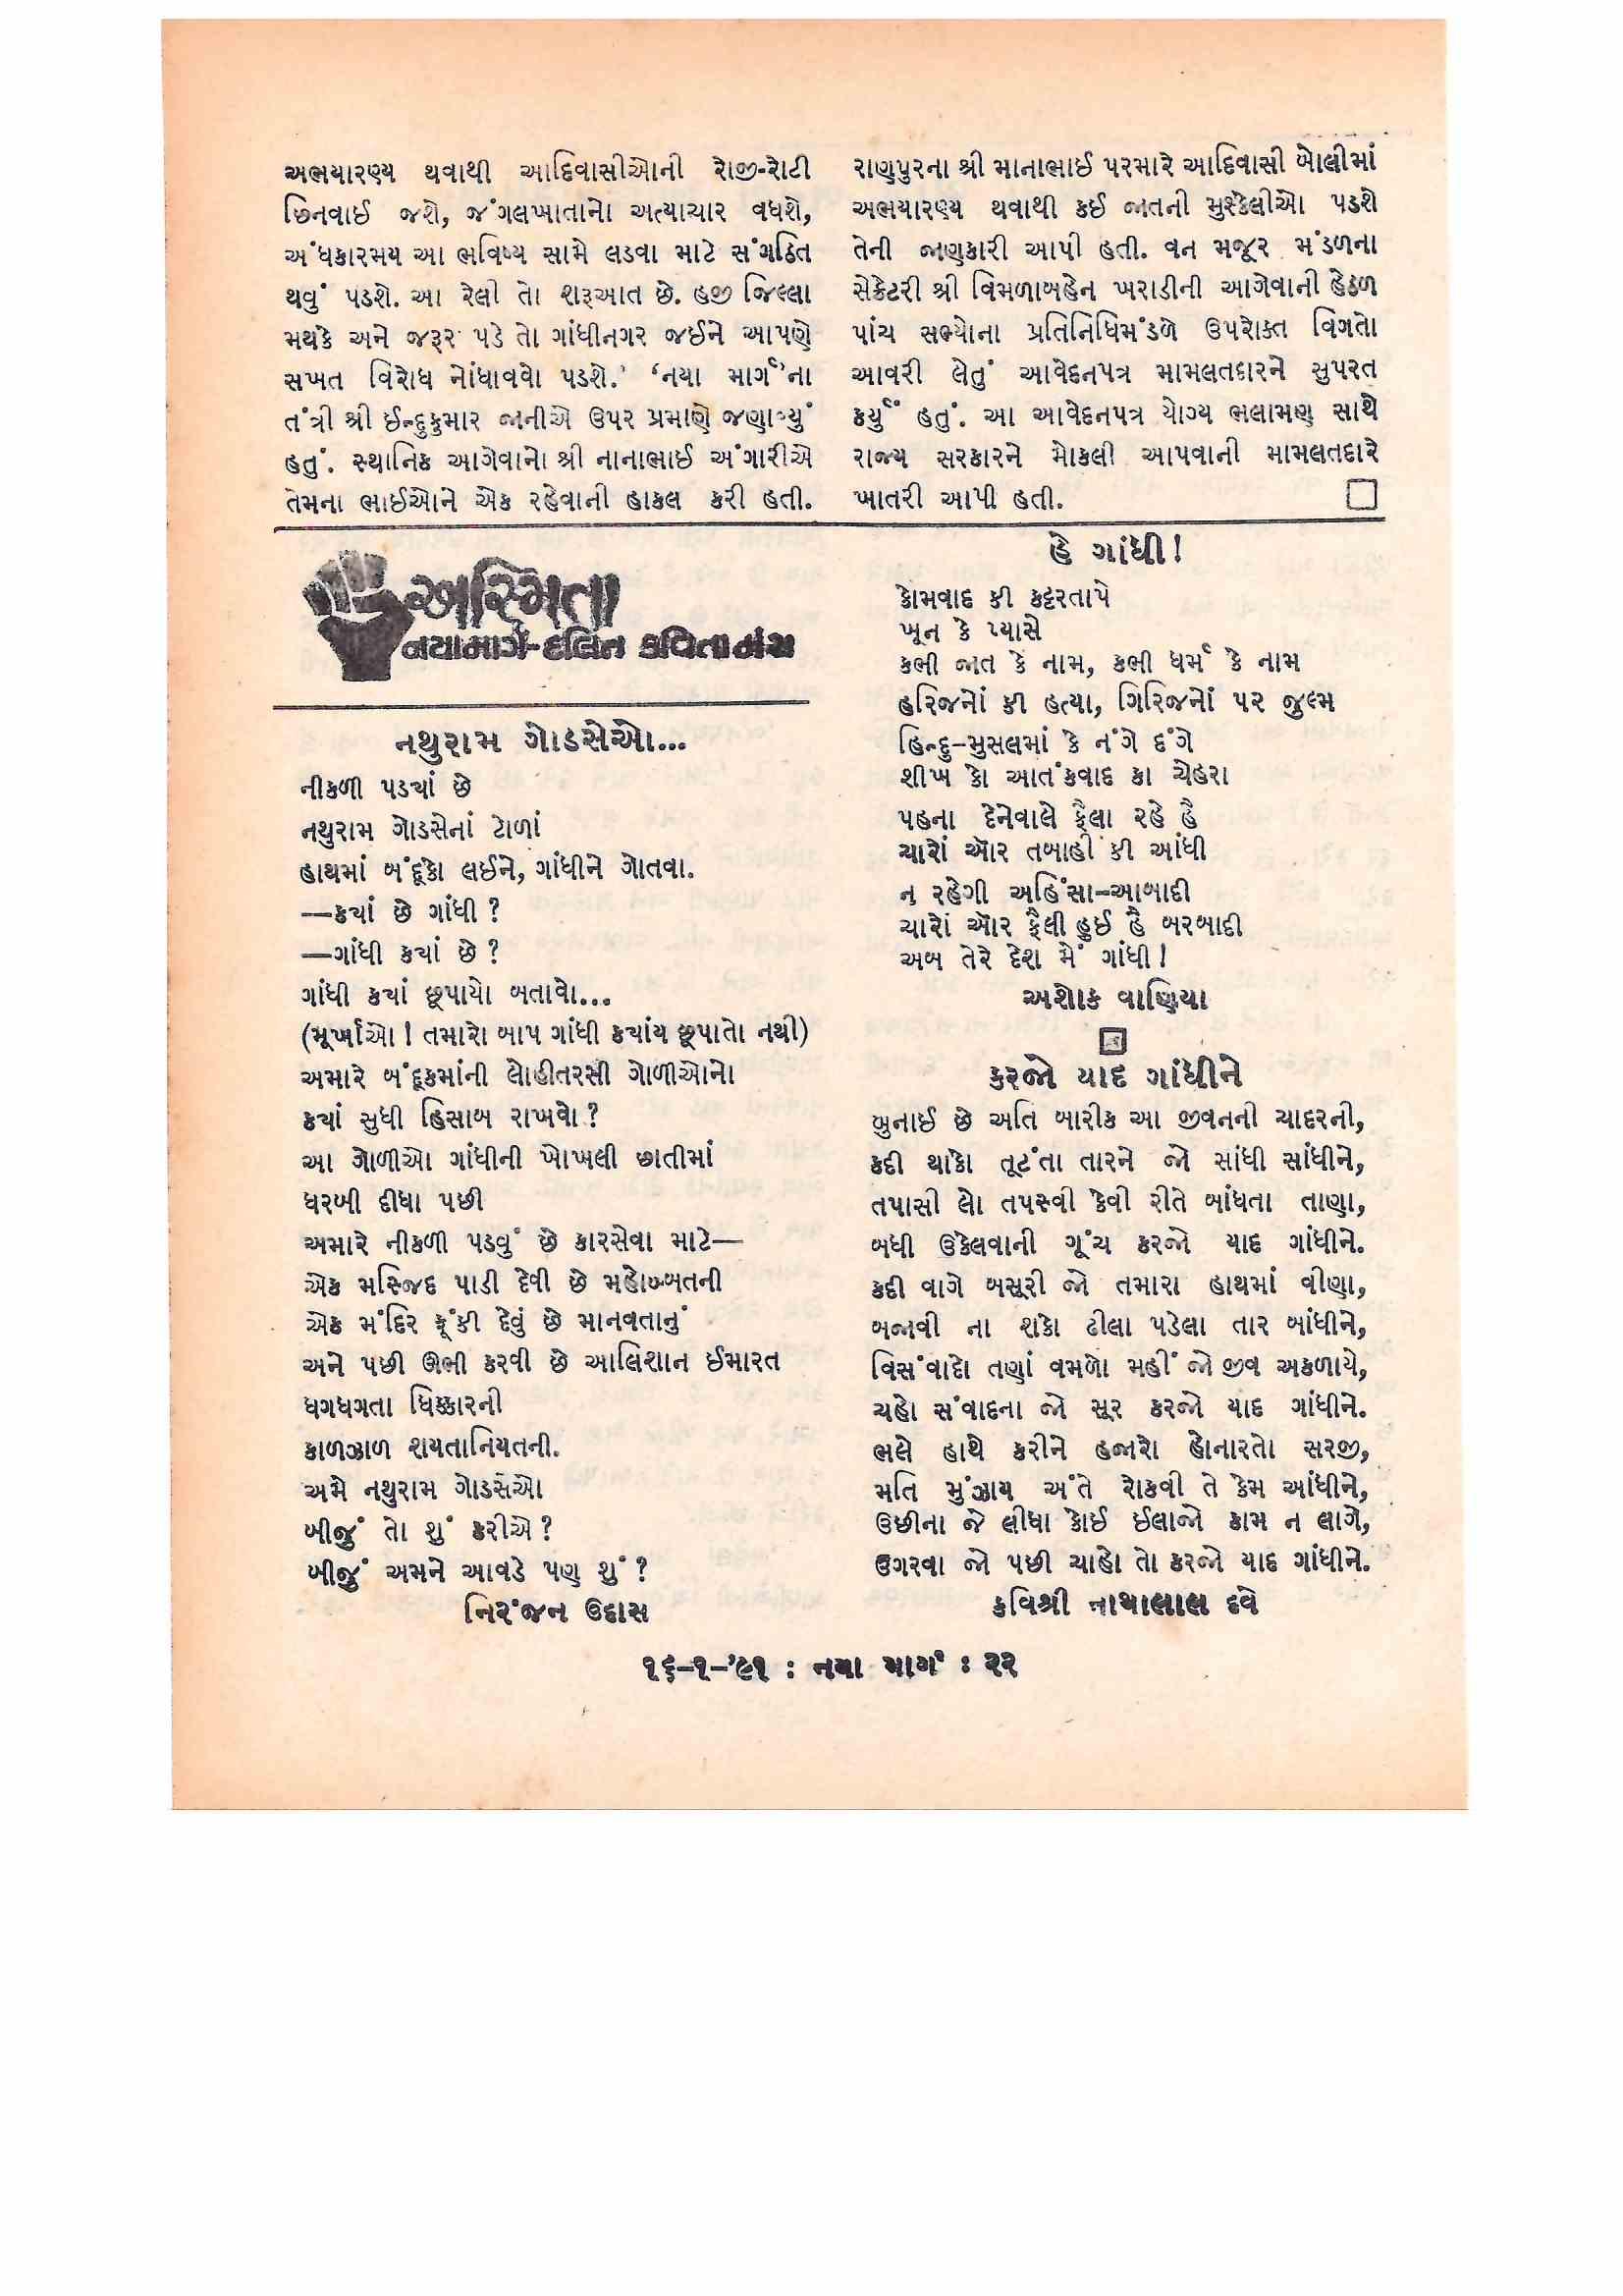 અભયારણ્ય થવાથી આદિવાસીઓની રોજી-રોટી
છિનવાઈ જશે, જંગલખાતાનો અત્યાચાર વધશે,
અંધકારમય આ ભવિષ્ય સામે લડવા માટે સંગઠિત
થવું પડશે. આ રેલી તો શરૂઆત છે. હજી જિલ્લા
મથકે અને જરૂર પડે તો ગાંધીનગર જઈને આપણે
સખત વિરોધ નોંધાવવો પડશે.' ‘નયા માર્ગ’ના
તંત્રી શ્રી ઈન્દુકુમાર જાનીએ ઉપર પ્રમાણે જણાવ્યું
હતું. સ્થાનિક આગેવાનો શ્રી નાનાભાઈ અંગારીએ
તેમના ભાઈઓને એક રહેવાની હાકલ કરી હતી.
રાણપુરના શ્રી માનાભાઈ પરમારે આદિવાસી બોલીમાં
અભયારણ્ય થવાથી કઈ જાતની મુશ્કેલીઓ પડશે
તેની જાણકારી આપી હતી. વન મજૂર મંડળના
સેક્રેટરી શ્રી વિમળાબહેન ખરાડીની આગેવાની હેઠળ
પાંચ સભ્યોના પ્રતિનિધિમંડળે ઉપરોક્ત વિગતો
આવરી લેતું આવેદનપત્ર મામલતદારને સુપરત
કર્યું હતું. આ આવેદનપત્ર યોગ્ય ભલામણ સાથે
રાજ્ય સરકારને મોકલી આપવાની મામલતદારે
ખાતરી આપી હતી.
અસ્મિતા
નયામાર્ગ-દલિત કવિતામંચ
નથુરામ ગોડસેઓ...
નીકળી પડ્યાં છે
નથુરામ ગોડસેનાં ટોળાં
હાથમાં બંદૂકો લઈને, ગાંધીને ગોતવા.
—ક્યાં છે ગાંધી ?
—ગાંધી ક્યાં છે ?
ગાંધી ક્યાં છૂપાયો બતાવો...
(મૂર્ખાઓ ! તમારો બાપ ગાંધી ક્યાંય છૂપાતો નથી)
અમારે બંદૂકમાંની લોહીતરસી ગોળીઓનો
ક્યાં સુધી હિસાબ રાખવો ?
આ ગોળીઓ ગાંધીની ખોખલી છાતીમાં
ધરબી દીધા પછી
અમારે નીકળી પડવું છે કારસેવા માટે—
એક મસ્જિદ પાડી દેવી છે મહોબ્બતની
એક મંદિર ફૂંકી દેવું છે માનવતાનું
અને પછી ઊભી કરવી છે આલિશાન ઈમારત
ધગધગતા ધિક્કારની
કાળઝાળ શયતાનિયતની.
અમે નથુરામ ગોડસેઓ
બીજું તો શું કરીએ ?
બીજું અમને આવડે પણ શું ?
નિરંજન ઉદાસ
હે ગાંધી !
કોમવાદ કી કટ્ટરતાપે
ખૂન કે પ્યાસે
કભી જાત કે નામ, કભી ધર્મ કે નામ
હરિજનોં કી હત્યા, ગિરિજનોં પર જુલ્મ
હિન્દુ-મુસલમાં કે નંગે દંગે
શીખ કો આતંકવાદ કા ચેહરા
પહના દેનેવાલે ફૈલા રહે હૈ
ચારોં ઓર તબાહી કી આંધી
ન રહેગી અહિંસા-આબાદી
ચારોં ઓર ફૈલી હુઈ હૈ બરબાદી
અબ તેરે દેશ મેં ગાંધી !
અશોક વાણિયા
કરજો યાદ ગાંધીને
બુનાઈ છે અતિ બારીક આ જીવનની ચાદરની,
કદી થાકો તૂટંતા તારને જો સાંધી સાંધીને,
તપાસી લો તપસ્વી કેવી રીતે બાંધતા તાણા,
બધી ઉકેલવાની ગૂંચ કરજો યાદ ગાંધીને.
કદી વાગે બસૂરી જો તમારા હાથમાં વીણા,
બજાવી ના શકો ઢીલા પડેલા તાર બાંધીને,
વિસંવાદો તણાં વમળો મહીં જો જીવ અકળાયે,
ચહો સંવાદના જો સૂર કરજો યાદ ગાંધીને.
ભલે હાથે કરીને હજારો હોનારતો સરજી,
મતિ મુંઝાય અંતે રોકવી તે કેમ આંધીને,
ઉછીના જે લીધા કોઈ ઈલાજો કામ ન લાગે,
ઉગરવા જો પછી ચાહો તો કરજો યાદ ગાંધીને.
કવિશ્રી નાથાલાલ દવે
૧૬-૧-'૯૧ : નયા માર્ગ : ૨૨